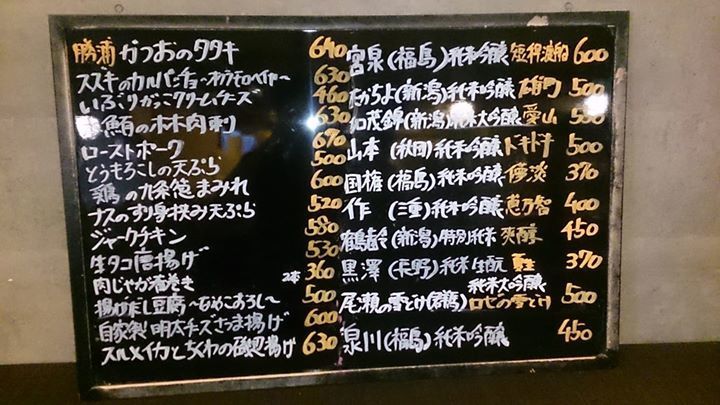 勝浦 かつおのタタキ 640
スズキのカルパッチョ 630
いぶりがっこクリームチーズ 460
鮪の 630
ローストポーク 670
とうもろこしの天ぷら 500
鶏の九条葱まみれ 600
ナスのすり身挟み天ぷら 520
ジャークチキン 580
生タコ唐揚げ 530
肉じゃが春巻き 2本 360
揚げだし豆腐 500
自家製 明太チーズさつま揚げ 600
スルメイカとちくわの磯辺揚げ 630
宮泉(福島)純米吟醸 600
たかちよ(新潟)純米吟醸 雄町 500
加茂錦(新潟)純米大吟醸 愛山 550
山本(秋田)純米吟醸 ドキドキ 500
国権(福島)純米吟醸 370
作(三重)純米吟醸 恵乃智 400
鶴齢(新潟)特別純米 爽醇 450
黒澤(長野)純米生酛 370
尾瀬の雪どけ(群馬)純米大吟醸 ロゼの雪どけ 500
泉川(福島)純米吟醸 450